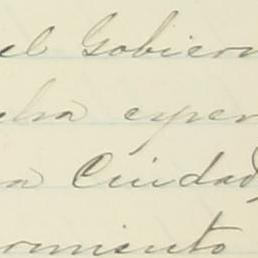 el Gobiern
cha esper
a Ciudad,
ormiento